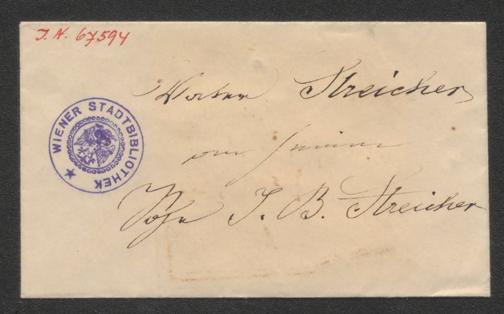 J. N. 67594
WIENER STADTBIBLIOTHEK
Streicher
von seinem
Sohn J. B. Streicher